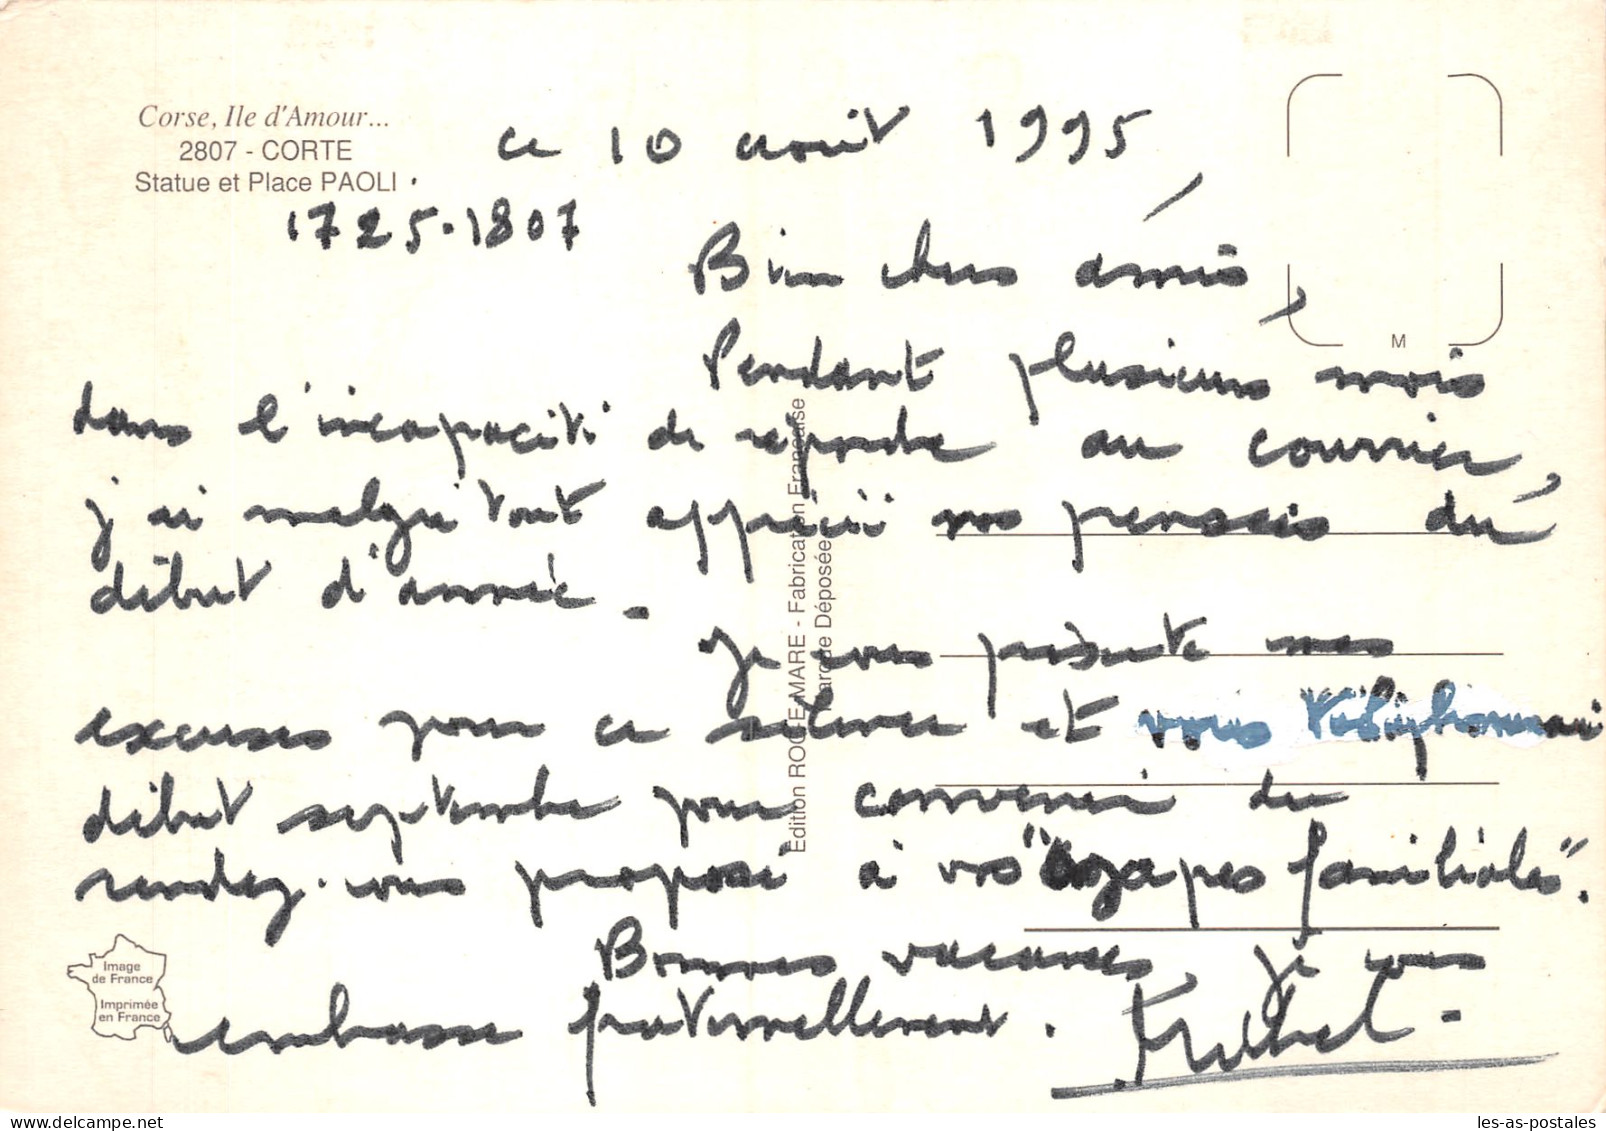 Corse, Ile d'Amour...
2807 - CORTE
Statue et Place PAOLI .
1725.1807
ce 10 août 1995
Bien chers amis,
M
Pendant plusieurs mois
dans l'incapacité de répondre au courrier,
j'ai malgré tout apprécié vos pensées du
début d'année.
Je vous présente mes
excuses pour ce silence et vous téléphonerai
début septembre pour convenir du
rendez-vous proposé à vos "agapes familiales".
Bonnes vacances, je vous
embrasse fraternellement.
Edition ROGEMARE - Fabrication Française
Marque Déposée
Image
de France
Imprimée
en France
les-as-postales